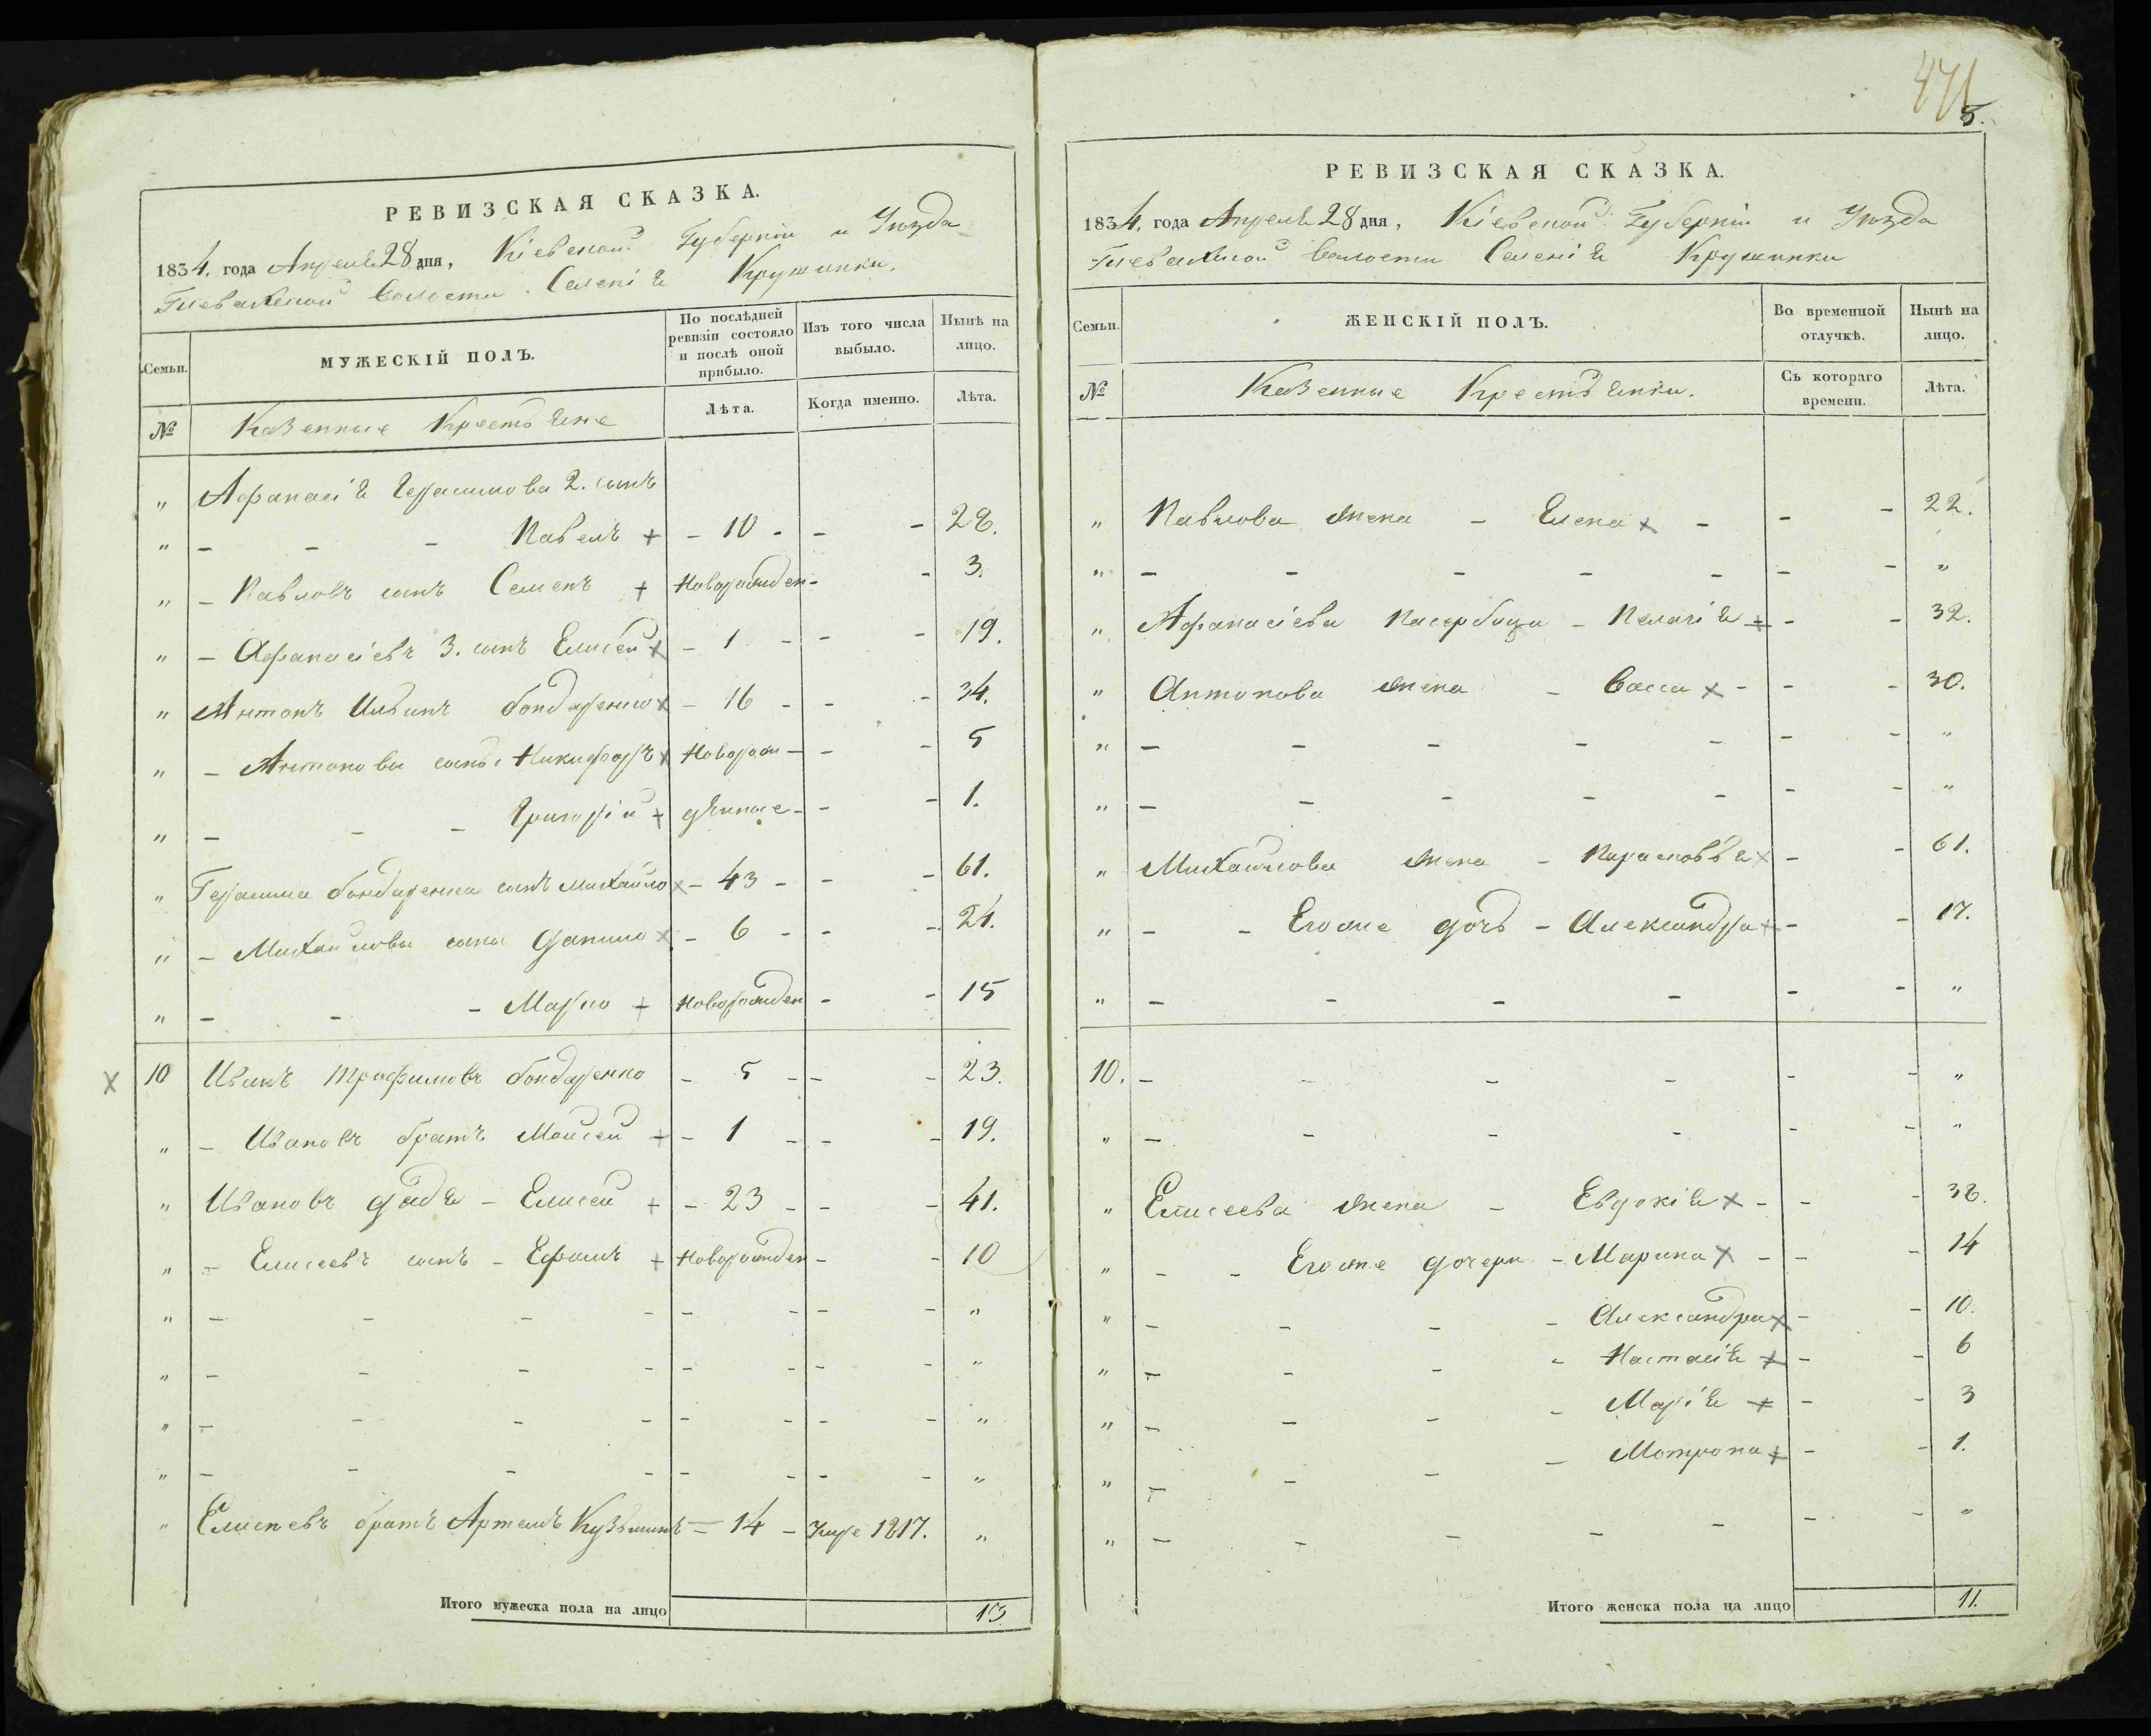 РЕВИЗСКАЯ СКАЗКА.
1834. года Апреля 28 дня, Кіевской Губерніи и Уѣзда
Глевахской Волости Селенія Крушинки.
Семьи.
МУЖЕСКІЙ ПОЛЪ.
По послѣдней ревизіи состояло и послѣ оной прибыло.
Изъ того числа выбыло.
Нынѣ на лицо.
№
Казенные Крестьяне
Лѣта.
Когда именно.
Лѣта.
" Афанасія Герасимова 2. сынъ
" - - - Павелъ + - 10 - - - 28.
" - Павловъ сынъ Семенъ + Новорожден - - 3.
" - Афанасіевъ 3. сынъ Елисей х - 1 - - - 19.
" Антонъ Ильинъ Бондаренко х - 16 - - - 34.
" - Антоновы сыны: Никифоръ х Новорож - - - 5
" - - - Григорій + денные - - - 1.
" Герасима Бондаренка сынъ Михайло х - 43 - - - 61.
" - Михайловы сыны Данило х - 6 - - - 24.
" - - - Марко + Новорожден - - 15
х 10 Иванъ Трофимовъ Бондаренко - 5 - - - 23.
" - Ивановъ братъ Моисей + - 1 - - - 19.
" Ивановъ дядя - Елисей + - 23 - - - 41.
" - Елисеевъ сынъ - Ефимъ + Новорожден - - 10
" - - - - - - - - "
" - - - - - - - - "
" - - - - - - - - "
" - - - - - - - - "
" Елисеевъ братъ Артемъ Кузьминъ - 14 - Умре 1817. "
Итого мужеска пола на лицо 13
471
5.
РЕВИЗСКАЯ СКАЗКА.
1834. года Апреля 28 дня, Кіевской Губерніи и Уѣзда
Глевахской Волости Селенія Крушинки
Семьи.
ЖЕНСКІЙ ПОЛЪ.
Во временной отлучкѣ.
Нынѣ на лицо.
№
Казенные Крестьянки.
Съ котораго времени.
Лѣта.
" Павлова жена - Елена х - - - 22.
" - - - - - - - "
" Афанасіева Пасербица - Пелагія + - - 32.
" Антонова жена - Васса х - - - 30.
" - - - - - - - "
" - - - - - - - "
" Михайлова жена - Парасковья х - - 61.
" - - Его же дочь - Александра + - - 17.
" - - - - - - "
10. - - - - - "
" - - - - - - "
" Елисеева жена - Евдокія х - - - 38.
" - - Его же дочери - Марина х - - - 14
" - - - - Александра х - - 10.
" - - - - Настасія + - - 6
" - - - - Марія + - - 3
" - - - - Мотрона + - - 1.
" - - - - - - "
Итого женска пола на лицо 11.